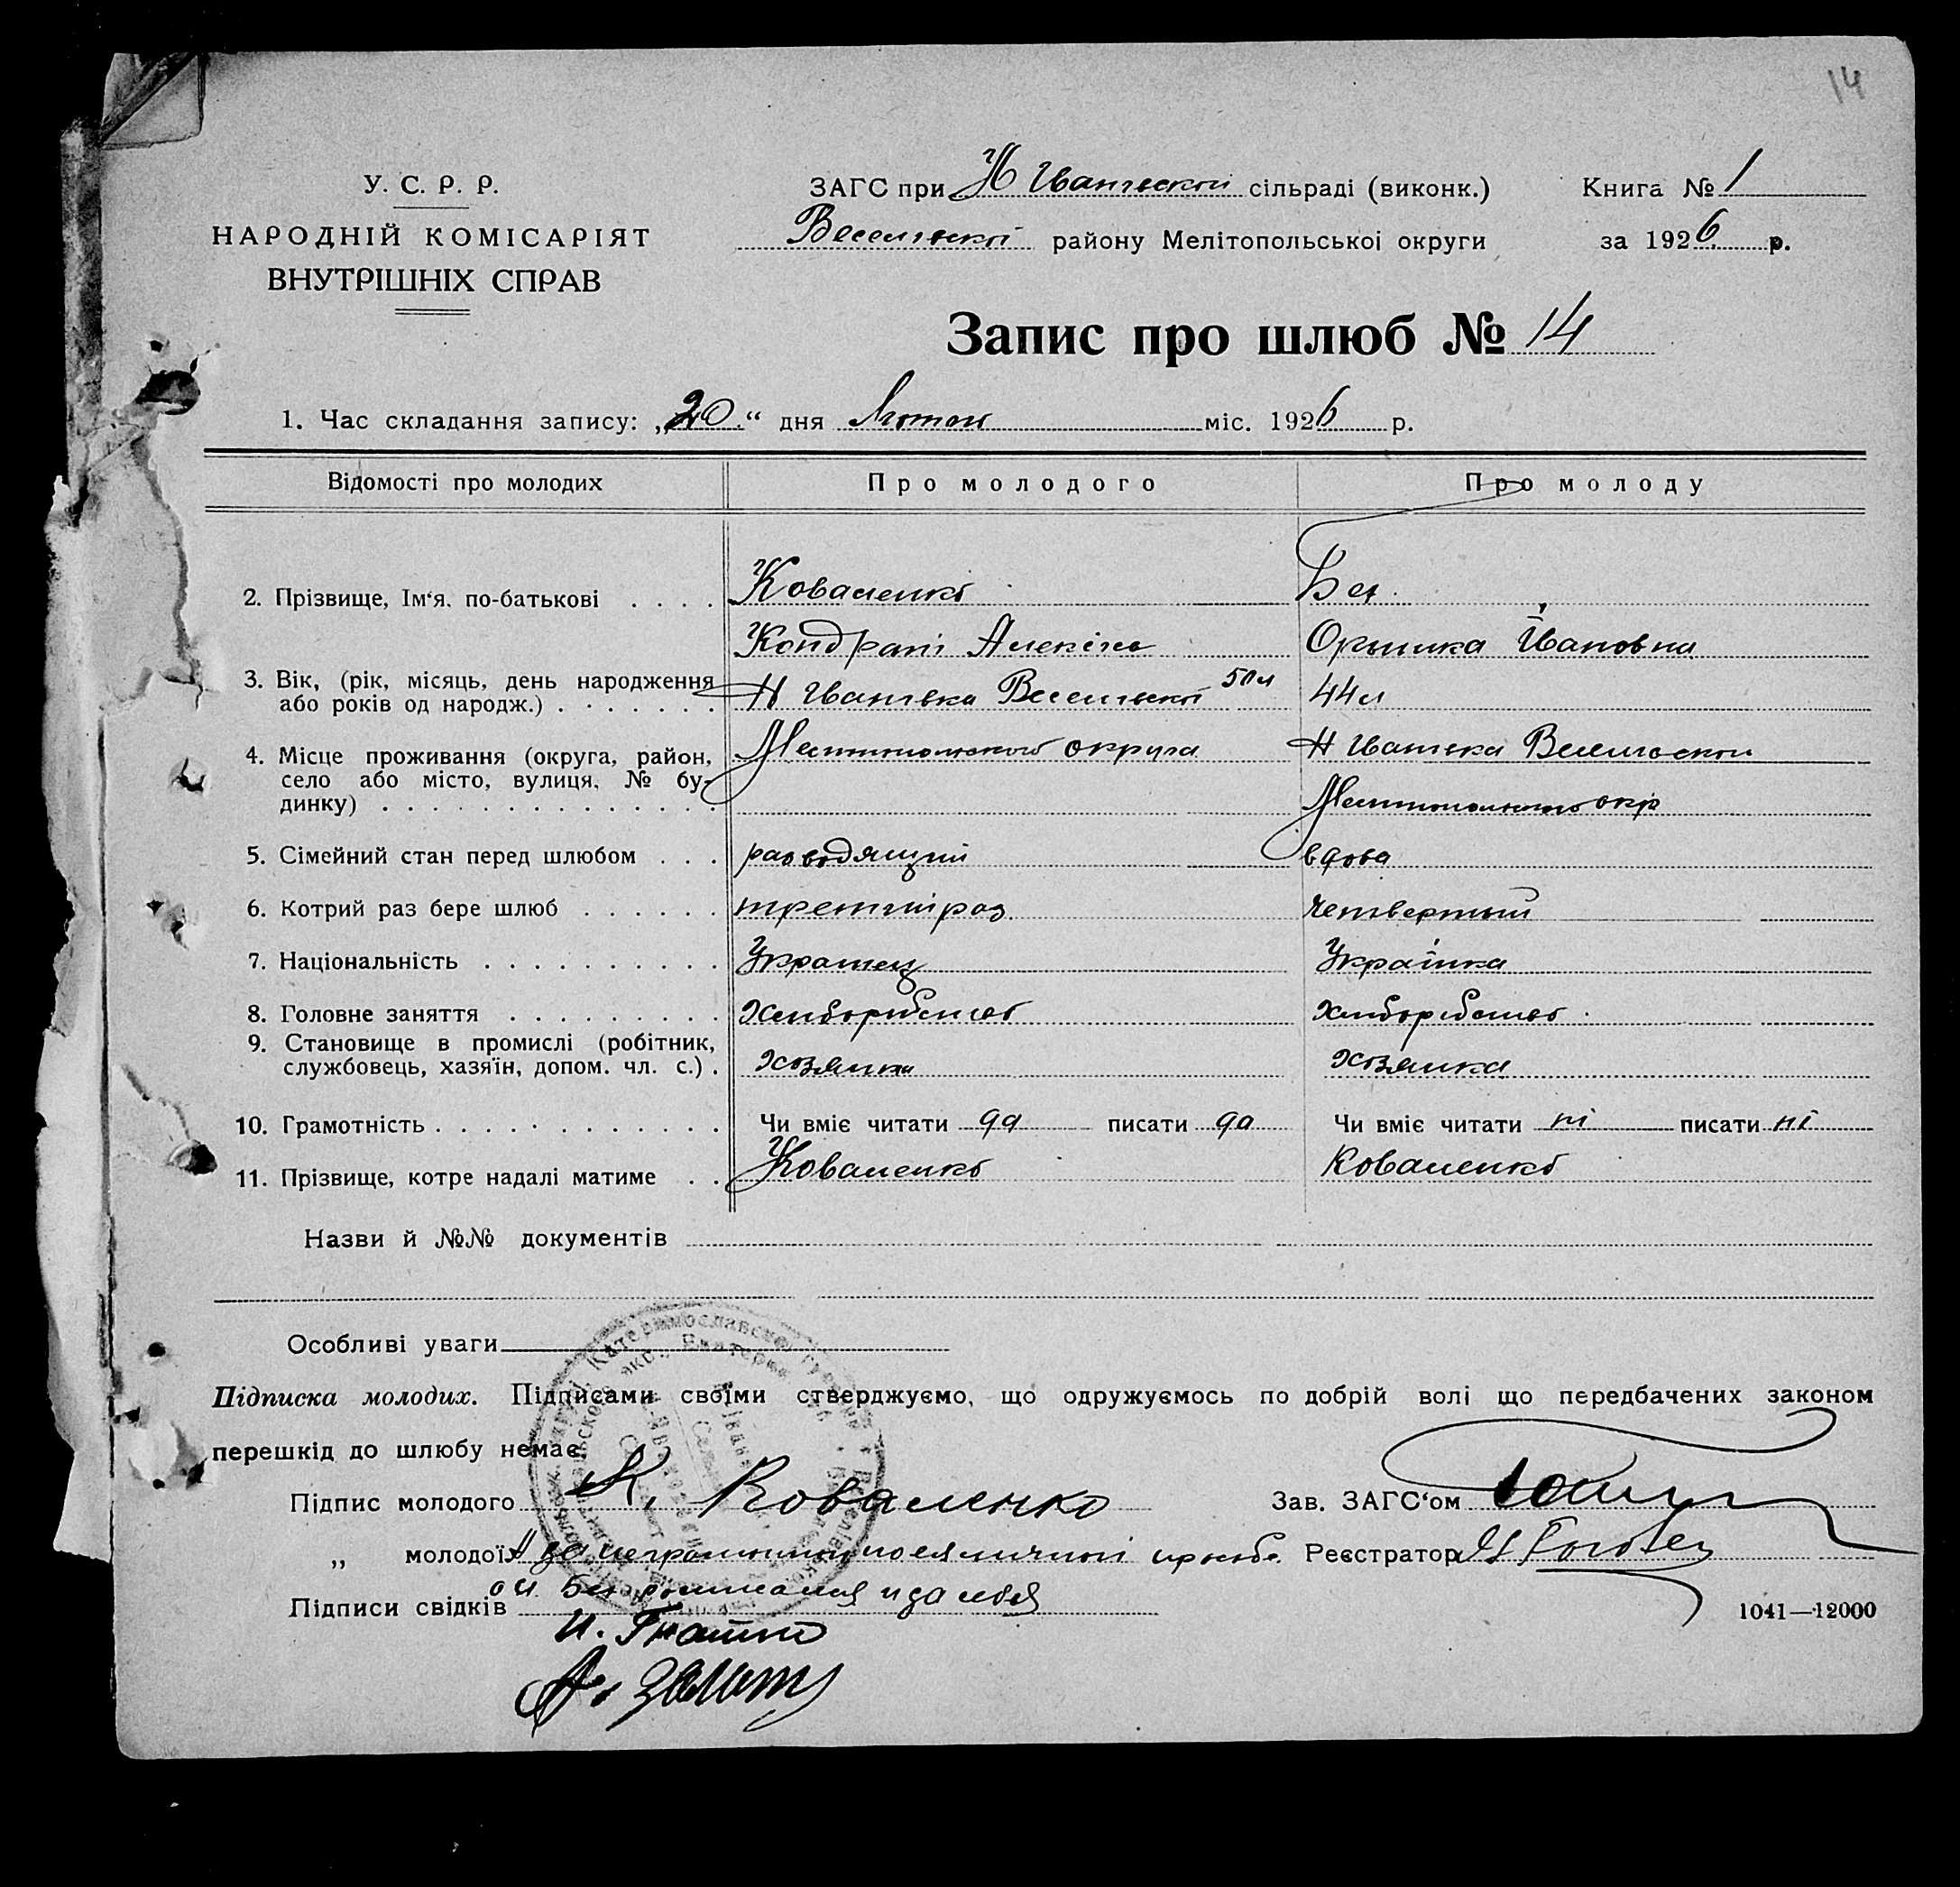 14
У. С. Р. Р.
НАРОДНІЙ КОМІСАРІЯТ
ВНУТРІШНІХ СПРАВ
ЗАГС при Н Іванівской сільраді (виконк.)
Веселівской району Мелітопольськоі округи
Книга № 1
за 1926 р.
Запис про шлюб № 14
1. Час складання запису: „20“ дня Лютого міс. 1926 р.
Відомості про молодих
Про молодого
Про молоду
2. Прізвище, Ім‘я, по-батькові . . . .
Коваленко
Кондрат
Бея
Ивановна
3. Вік, (рік, місяць, день народження
або років од народж.) . . . . . . .
50 л
44 л
4. Місце проживання (округа, район,
село або місто, вулиця, № бу-
динку) . . . . . . . . . . . . . .
Н Іванівка Веселівской
Мелитопольского округа
Н Іванівка Веселівской
Мелитопольского окр
5. Сімейний стан перед шлюбом . . .
вдова
6. Котрий раз бере шлюб . . . . . .
третий раз
четвертый
7. Національність . . . . . . . . . .
Украінец
Украінка
8. Головне заняття . . . . . . . . .
хліборобство
хліборобство
9. Становище в промислі (робітник,
службовець, хазяїн, допом. чл. с.) .
хозяин
хозяика
10. Грамотність . . . . . . . . . . . .
Чи вміє читати да писати да
Чи вміє читати ні писати ні
11. Прізвище, котре надалі матиме . .
Коваленко
Коваленко
Назви й №№ документів
Особливі уваги
Підписка молодих. Підписами своїми стверджуємо, що одружуємось по добрій волі що передбачених законом
перешкід до шлюбу немає.
Підпис молодого К. Коваленко
Зав. ЗАГС‘ом
„ молодої А за неграмотной по ея личной прозьбе
Реєстратор
Підписи свідків
росписался и за себя
И. Гнатко
1041—12000